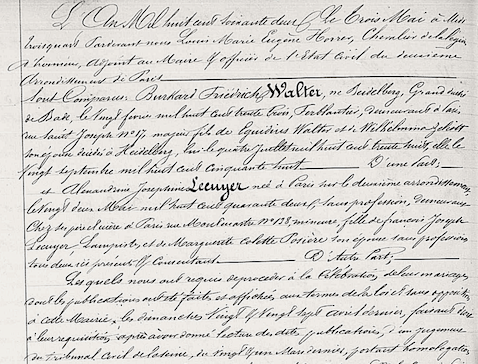 L'An Mil huit cent soixante deux, le Trois Mai à Midi
trois quarts Pardevant nous Louis Marie Eugène Chevalier de la Légion
d'honneur, Adjoint au Maire Officier de l'Etat Civil du deuxième
Arrondissement de Paris
Sont Comparus: Burkard Friedrich Walter, né Heidelberg, Grand duché
de Bade, le Vingt février mil huit cent trente trois, Ferblantier, demeurant à Paris,
rue Saint Joseph Nº 17, majeur fils de Egidius Walter et de Wilhelmina
son épouse décédés à Heidelberg, lui le quatre Juillet mil huit cent trente huit, elle le
vingt septembre mil huit cent cinquante huit D'une Part;
et Alexandrine Joséphine Lecuyer née à Paris sur le deuxième arrondissement
le Vingt deux Mai mil huit cent quarante deux, sans profession, demeurant
Chez ses père et mère à Paris rue Montmartre Nº 138, mineure fille de François Joseph
Lecuyer Lampiste, et de Marguerite Colette son épouse sans profession
tous deux ici présents & Consentant D'Autre Part;
Lesquels nous ont requis de procéder à la Célébration de leur mariage
dont les publications ont été faites et affichées aux termes de la loi et sans opposition
à cette Mairie, les dimanches Vingt & Vingt sept avril dernier, faisant droit
à leur requisition, après avoir donné lecture des dites publications, d'un jugement
du tribunal Civil de la Seine, du Vingt un Mars dernier, portant homologation